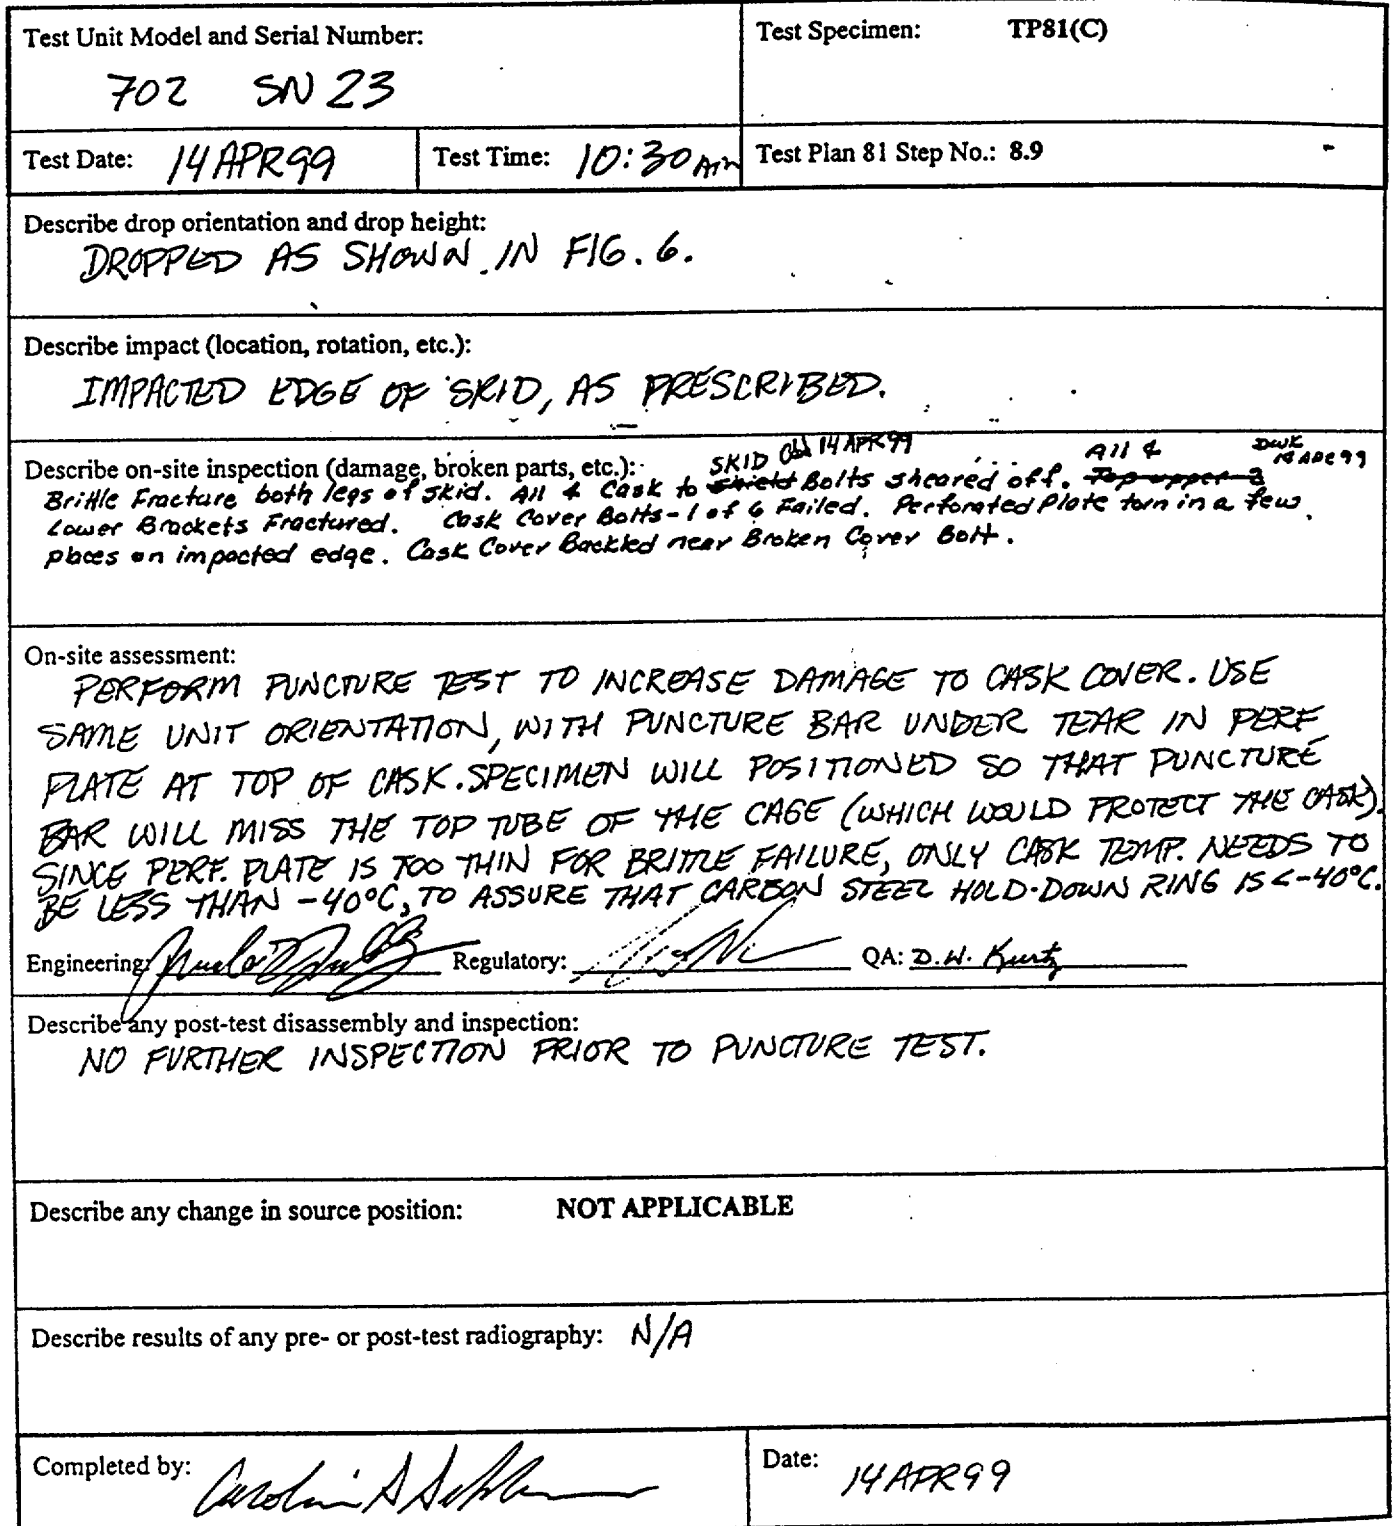 Test Unit Model and Serial Number:
702 SN 23
Test Specimen: TP81(C)
Test Date: 14 APR 99
Test Time: 10:30 Am
Test Plan 81 Step No.: 8.9
Describe drop orientation and drop height:
DROPPED AS SHOWN IN FIG. 6.
Describe impact (location, rotation, etc.):
IMPACTED EDGE OF SKID, AS PRESCRIBED.
SKID 14 APR 99 All 4 DWK 14 APR 99
Describe on-site inspection (damage, broken parts, etc.):
Brittle Fracture both legs of skid. All 4 Cask to Shield Bolts sheared off. Top upper 2
Lower Brackets Fractured. Cask Cover Bolts - 1 of 6 Failed. Perforated Plate torn in a few
places on impacted edge. Cask Cover Buckled near Broken Cover Bolt.
On-site assessment:
PERFORM PUNCTURE TEST TO INCREASE DAMAGE TO CASK COVER. USE
SAME UNIT ORIENTATION, WITH PUNCTURE BAR UNDER TEAR IN PERF
PLATE AT TOP OF CASK. SPECIMEN WILL POSITIONED SO THAT PUNCTURE
BAR WILL MISS THE TOP TUBE OF THE CAGE (WHICH WOULD PROTECT THE CASK).
SINCE PERF. PLATE IS TOO THIN FOR BRITTLE FAILURE, ONLY CASK TEMP. NEEDS TO
BE LESS THAN -40°C, TO ASSURE THAT CARBON STEEL HOLD-DOWN RING IS <-40°C.
Engineering: Regulatory: QA: D.W. Kurtz
Describe any post-test disassembly and inspection:
NO FURTHER INSPECTION PRIOR TO PUNCTURE TEST.
Describe any change in source position: NOT APPLICABLE
Describe results of any pre- or post-test radiography: N/A
Completed by:
Date: 14 APR 99